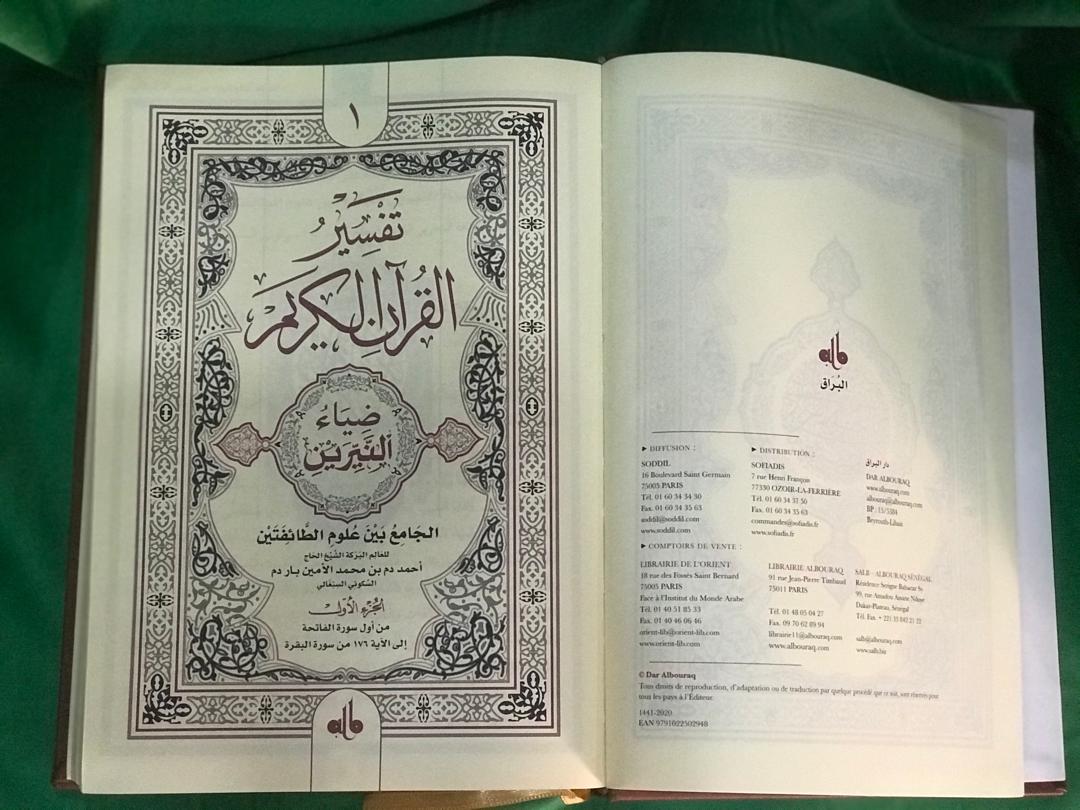 ١
تَفْسِيرُ
القُرآنِ الكَرِيمِ
ضِيَاءُ
النَّيِّرَيْنِ
الجَامِعُ بَيْنَ عُلومِ الطَّائِفَتَيْنِ
للعَالِمِ البَرَكَةِ الشَّيْخِ الحَاج
أحمد دم بن محمد الأمين بار دم
السَّكُوتي السِّنغَالي
الجُزءُ الأوَّل
من أول سورة الفاتحة
إلى الآية ١٧٦ من سورة البقرة
البُرَاق
► DIFFUSION :
SODDIL
16 Boulevard Saint Germain
75005 PARIS
Tél. 01 60 34 34 30
Fax. 01 60 34 35 63
soddil@soddil.com
www.soddil.com
► DISTRIBUTION :
SOFIADIS
7 rue Henri François
77330 OZOIR-LA-FERRIÈRE
Tél. 01 60 34 37 50
Fax. 01 60 34 35 63
commandes@sofiadis.fr
www.sofiadis.fr
دار البراق
DAR ALBOURAQ
www.albouraq.com
albouraq@albouraq.com
BP : 13/5384
Beyrouth-Liban
► COMPTOIRS DE VENTE :
LIBRAIRIE DE L'ORIENT
18 rue des Fossés Saint Bernard
75005 PARIS
Face à l'Institut du Monde Arabe
Tél. 01 40 51 85 33
Fax. 01 40 46 06 46
orient-lib@orient-lib.com
www.orient-lib.com
LIBRAIRIE ALBOURAQ
91 rue Jean-Pierre Timbaud
75011 PARIS
Tél. 01 48 05 04 27
Fax. 09 70 62 89 94
librairie11@albouraq.com
www.albouraq.com
SALB - ALBOURAQ SÉNÉGAL
Résidence Serigne Babacar Sy
99, rue Amadou Assane Ndoye
Dakar-Plateau, Sénégal
Tél. Fax. + 221 33 842 21 22
salb@albouraq.com
www.salb.biz
© Dar Albouraq
Tous droits de reproduction, d'adaptation ou de traduction par quelque procédé que ce soit, sont réservés pour
tous les pays à l'Éditeur.
1441-2020
EAN 9791022502948